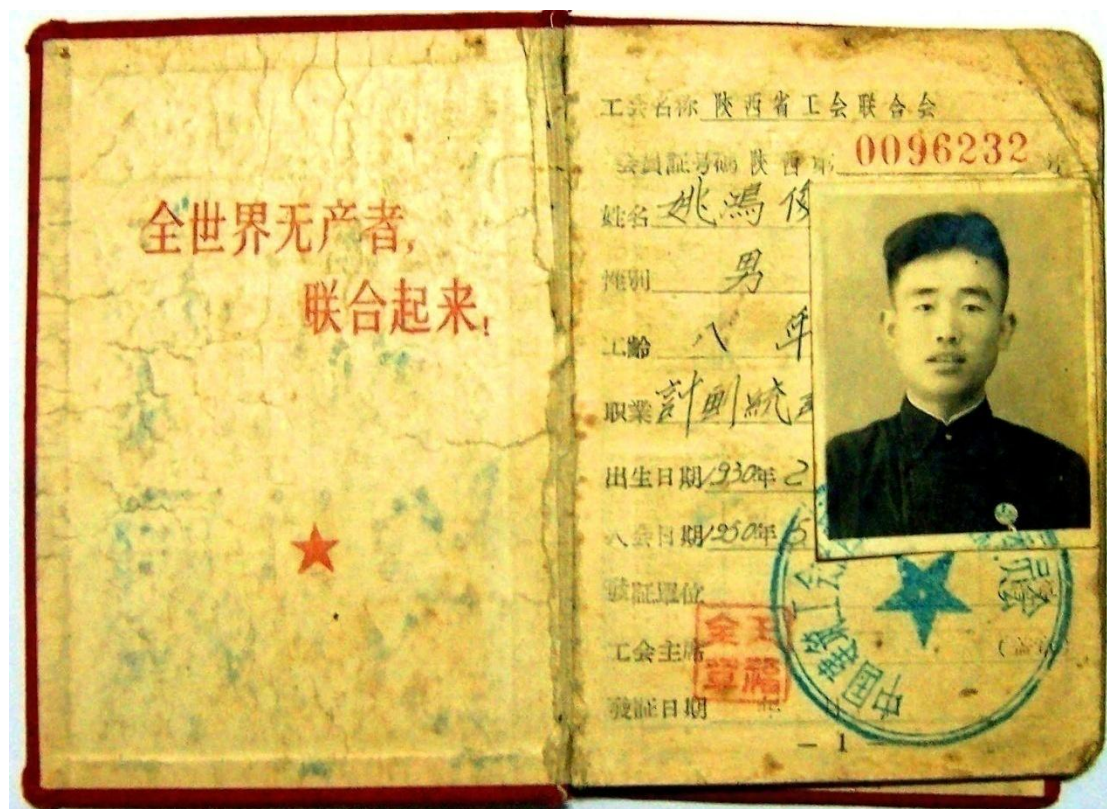 全世界无产者,
联合起来!
工会名称 陕西省工会联合会
会員証号碼 陕西 0096232
姓名 姚鴻俊
性别 男
工齡 八年
职業 計劃統
出生日期 1930年2
入会日期 1950年5
發証單位
工会主席
發証日期 年 日
中国建筑工会
— 1 —